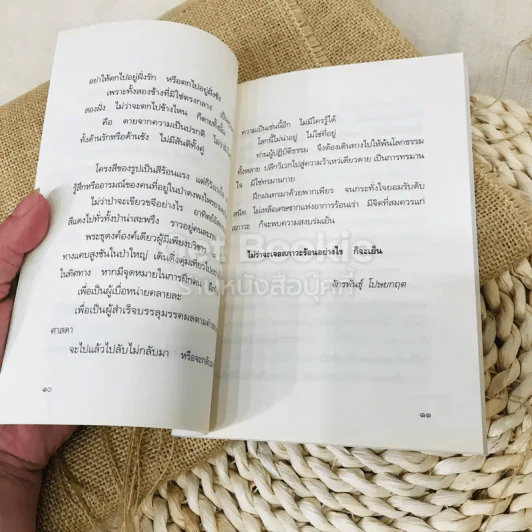 อย่าให้ตกไปอยู่ฝั่งรัก หรือตกไปอยู่ฝั่งชัง
เพราะทั้งสองข้างที่มิใช่ตรงกลาง
สองฝั่ง ไม่ว่าจะตกไปข้างไหน ก็ตายทั้งนั้น
คือ ตายจากความเป็นปรกติ
ทั้งด้านรักหรือด้านชัง ไม่มีสันติทั้งคู่
โครงสีของรูปเป็นสีร้อนแรง
รู้สึกหรืออารมณ์ของคนที่อยู่ในป่าดงพงไพร
ไม่ว่าป่าจะเขียวขจีอย่างไร
สีแดงไปทั่วทั้งป่าน่าสะพรึง ราวอยู่
พระธุดงค์องค์เดียวผู้มีเพียง
ทางแคบสูงชันในป่าใหญ่ เดิน
ในทิศทาง หากมีจุดหมายในการฝึกตน
เพื่อเป็นผู้เบื่อหน่ายคลายละ
เพื่อเป็นผู้สำเร็จบรรลุมรรคผลตาม
ศาสดา
จะไปแล้วไปลับไม่กลับมา หรือจะ
๑๐
ความเป็นเช่นนี้อีก ไม่มีใครรู้ได้
โลกนี้ไม่น่าอยู่ ไม่ใช่ที่อยู่
ท่านผู้ปฏิบัติธรรม จึงต้องเดินทางไปให้พ้นโลกธรรม
ทั้งหลาย ปลีกวิเวกไปสู่ความว้าเหว่เดียวดาย เป็นการทรมาน
ใจ มิใช่ทรมานกาย
ฝึกฝนทรมาด้วยพากเพียร จนกระทั่งใจยอมรับดับ
สนิท ไม่เหลือเศษซากแห่งอาการร้อนเร่า มีจิตที่สมควรแก่
สภาวะ ก็จะพบความสงบร่มเย็น
ไม่ว่าจะเจอสภาวะร้อนอย่างไร ก็จะเย็น
จักรพันธุ์ โปษยกฤต
๑๑
ร้านหนังสือบุ๊คกี้